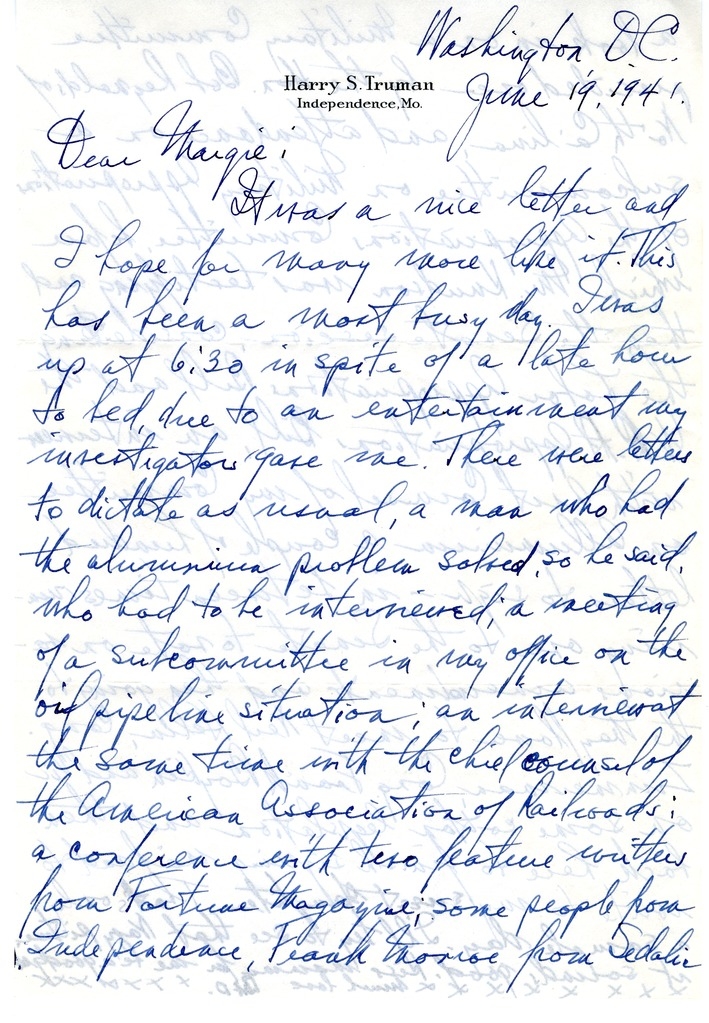 Washington, D.C.
Harry S. Truman
Independence, Mo.
June 19, 1941.
Dear Margie:
It was a nice letter and
I hope for many more like it. This
has been a most busy day. I was
up at 6:30 in spite of a late hour
to bed, due to an entertainment my
investigators gave me. There were letters
to dictate as usual, a man who had
the aluminum problem solved, so he said,
who had to be interviewed; a meeting
of a subcommittee in my office on the
oil pipe line situation; an interview at
the same time with the chief counsel of
the American Association of Railroads;
a conference with two feature writers
from Fortune Magazine; some people from
Independence, Frank Monroe from Sedalia